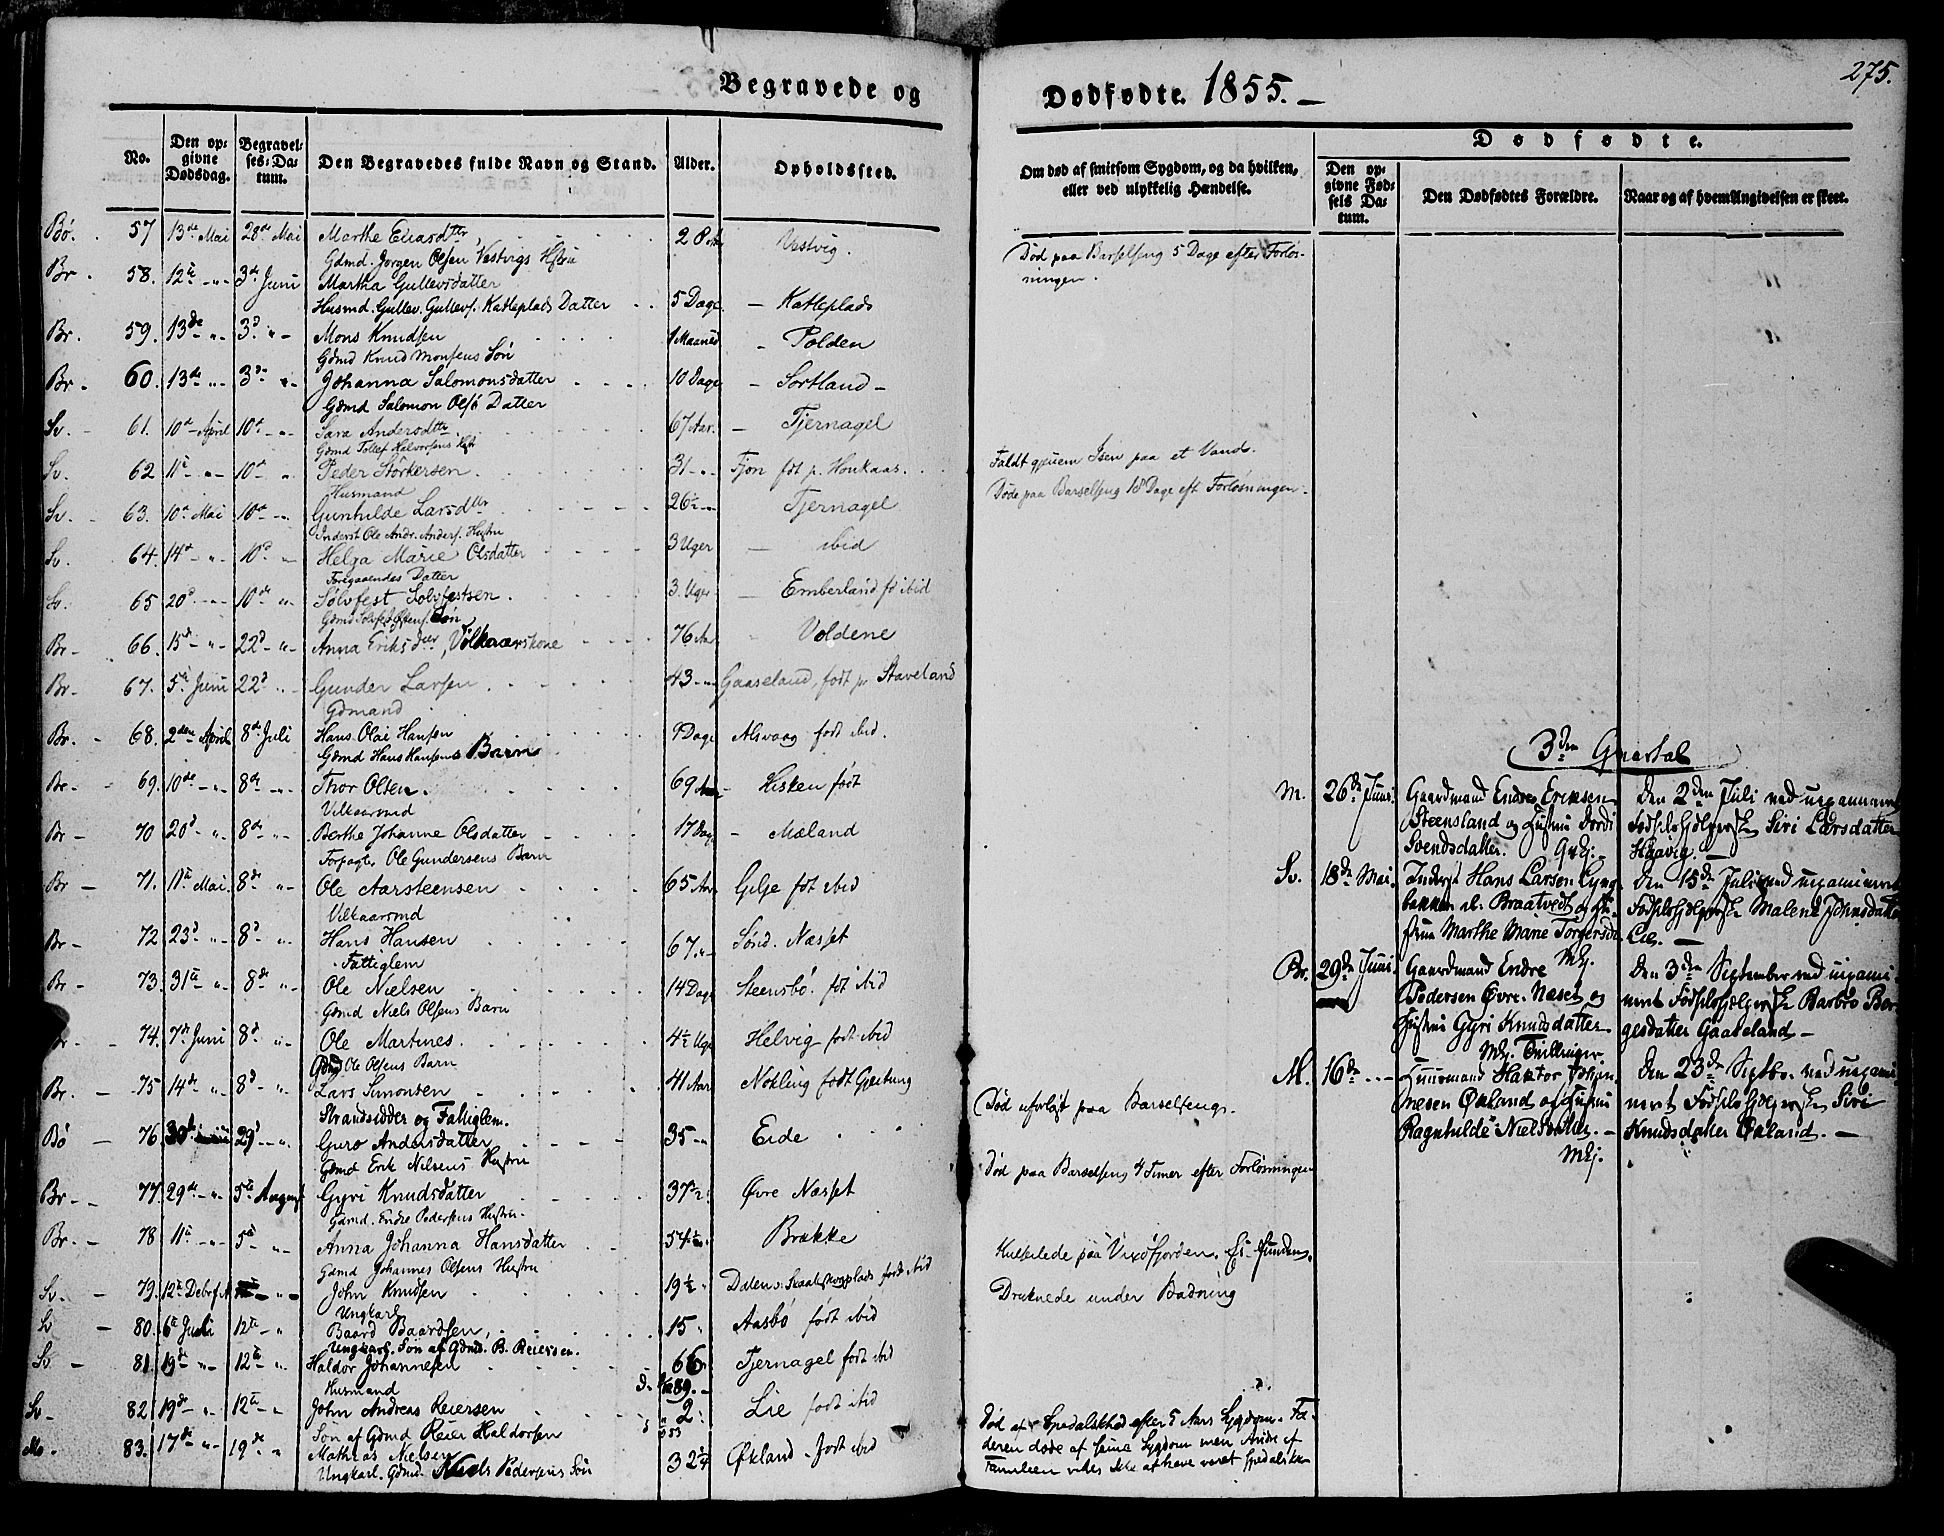 275.
Begravede og Dødfødte. 1855. –
No.
Den opgivne Dødsdag.
Begravelses-Datum.
Den Begravedes fulde Navn og Stand.
Alder.
Opholdssted.
Om død af smitsom Sygdom, og da hvilken, eller ved ulykkelig Hændelse.
Dødfødte.
Den opgivne Fødsels Datum.
Den Dødfødtes Forældre.
Naar og af hvem Angivelsen er skeet.
Bø. 57 13de Mai 28de Mai Marthe Eliasdtr, 2 Vestvig.
Gdmd. Jorgen Olsen Vestvigs
Br. 58. 12te -"- 3de Juni Martha Gullevsdatter 5 Dage – Katleplads
Husmd. Gullev Gullevs. Katleplads Datter
Død paa Barselseng 5 Dage efter Forløs-
ningen.
Br. 59. 13de -"- 3d "- Mons Knudsen 1 Maaned Polden
Gdmd Knud Monsens Søn
Br - 60. 13de -"- 3de Johanna Salomonsdatter 10 Dage - Sortland -
Gdmd Salomon Datter
Sv. - 61. 10de April 10de -"- Sara Andersdtr 67 Aar. – Tjernagel
Gdmd Tollef Halvorsens
Sv. 62 11te -"- 10de " Peder Størkersen 31 -"- Fjon fdt p.
Husmand
Faldt gjenem Isen paa et Vand.
Sv. - 63. 10de Mai 10de -"- Gunhilde Larsdtr 26 Tjernagel
Inderst Ole Andr. Anders. Hustru
Døde paa Barselseng 18 Dage eft Forløsningen.
Sv. 64. 14de -"- 10d " Helga Marie Olsdatter 3 Uger – ibid
Foregaaendes Datter
Sv. 65 20d -"- 10de "- Sølvfest Solvfestsen. 3. Uger – Emberland ibid
Søn
Br - 66. 15de -"- 22d "- Anna Eriksdtr, Vilkaarskone 76 Aar Voldene
Br - 67. 5te Juni 22d "- Gunder Larsen 43 -"- Gaaseland, født p. Staveland
Gdmand
Br. - 68. 2den April 8de Juli Hans Olai Hansen 9 Dage Alsvaag født ibid.
Gdmd Hans Hansens Barn
Br - 69. 10de -"- 8de "- Thor Olsen. 69 Aar - Hisken født
Vilkaarmd
Br - 70 20d -"- 8de "- Berthe Johanne Olsdatter 17 Dage – Mæland
Forpagter Ole Gundersens Barn
Br – 71. 11te Mai. 8de "- Ole Aarsteensen 65 Aar Gilje fdt ibid
Vilkaarsmd
Br – 72 23d " 8d "- Hans Hansen 67 "- Sønd. Næsset
Fattiglem
Br – 73. 31te " 8de "- Ole Nielsen 14 Dage Steensbø. fdt ibid
Gdmd Niels Olsens Barn
Br – 74. 7de Juni 8d "- Ole Martines. 4½ Uge Helvig født ibid
Gdmd Ole Olsens Barn
Br. – 75 14de " 8d - "- Lars Simonsen 41 Aar født
Strandsidder og Fattiglem.
Bø – 76 30de 29d -"- Guro Andersdatter 35 -"- Eide
Gdmd Erik Nielsens Hustru
Død paa Barselsengs.
Br – 77 29de -"- 5te August Gyri Knudsdatter 37½ Øvre Næsset
Gdmd. Endre Pedersens Hustru
Død paa Barselseng 4 Timer efter Forløsningen
Br. – 78 11te -"- 5te "- Anna Johanna Hansdatter 54 Brække
Gdmd Johannes Olsens Hustru
Kulseilede paa fjorden. Ei funden.
Sv. – 79. 12te "- John Knudsen 19½ født ibid
Ungkarl
Druknede under Badning
Sv – 80. 6te Juli 12te - " Baard Baardsen, 15 Aasbø født ibid
Ungkarl. Søn af Gdmd. B. Reiersen.
Sv – 81. 19de " 12te "- Haldor Johannesen 66 Tjernagel født ibid
Husmand
Sv - 82 19de " 12te - " John Andreas Reiersen 2 Lie født ibid
Søn af Gdmd Reier Haldorsen
Mø. 83. 17de -"- 19de " Mathias Nielsen 32 Økland - født ibid
Ungkarl. Gdmd. Niels Pedersens Søn
Død af Spedalskhed efter 5 Aars Sygdom. Fa-
deren døde af samme Sygdom men Andre af
Familien vides ikke at have været spedalske
3die Quartal
M. 26de Juni. Gaardmand Endre Eriksen
Steensland og Hustru Dordi
Svendsdatter.
Den 2den Juli ved uexamineret
Fødselshjelperske Siri Larsdatter
Haavig. –
Sv. 18de Mai. Inderst Hans Larsen Lyng-
bakken al. Braatvedt og Hu-
strue Marthe Marie Torgersdr
Den 15de Juli ved uexamineret
Fødselshjelperske Malene Johnsdatter
Lie. –
Br. 29de Juni Gaardmand Endre
Pedersen Øvre-Næset og
Hustru Gyri Knudsdatter
Tvillinger.
Den 3die September ved uexami-
neret Fødselshjelperske Barbro Ber-
gesdatter Gaaseland –
M. 16de - - - Huusmand Haktor Johan-
nesen Økland og Hustru
Ragnhilde Nielsdatter. –
Den 23de Septbr. ved uexami-
neret Fødselshjelperske Siri
Knudsdatter Økland. –